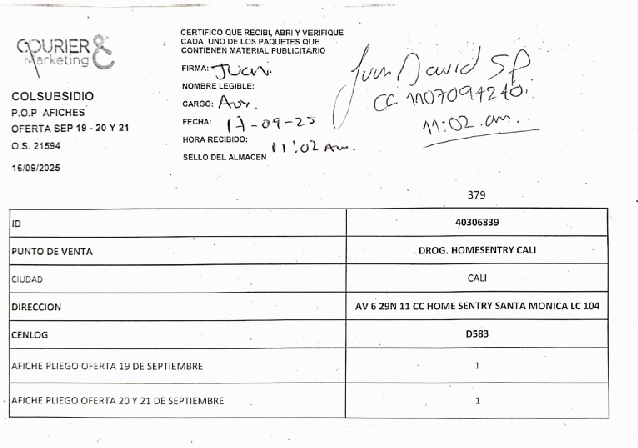 COURIER &
Marketing
COLSUBSIDIO
P.O.P AFICHES
OFERTA SEP 19 - 20 Y 21
O.S. 21594
16/09/2025
CERTIFICO QUE RECIBI, ABRI Y VERIFIQUE
CADA UNO DE LOS PAQUETES QUE
CONTIENEN MATERIAL PUBLICITARIO
FIRMA: Juan
NOMBRE LEGIBLE:
CARGO: Aux.
FECHA: 17-09-25
HORA RECIBIDO: 11:02 am.
SELLO DEL ALMACEN
Juan David S P
CC 1107094240.
11:02 am.
379
ID 40306839
PUNTO DE VENTA DROG. HOMESENTRY CALI
CIUDAD CALI
DIRECCION AV 6 29N 11 CC HOME SENTRY SANTA MONICA LC 104
CENLOG D583
AFICHE PLIEGO OFERTA 19 DE SEPTIEMBRE 1
AFICHE PLIEGO OFERTA 20 Y 21 DE SEPTIEMBRE 1